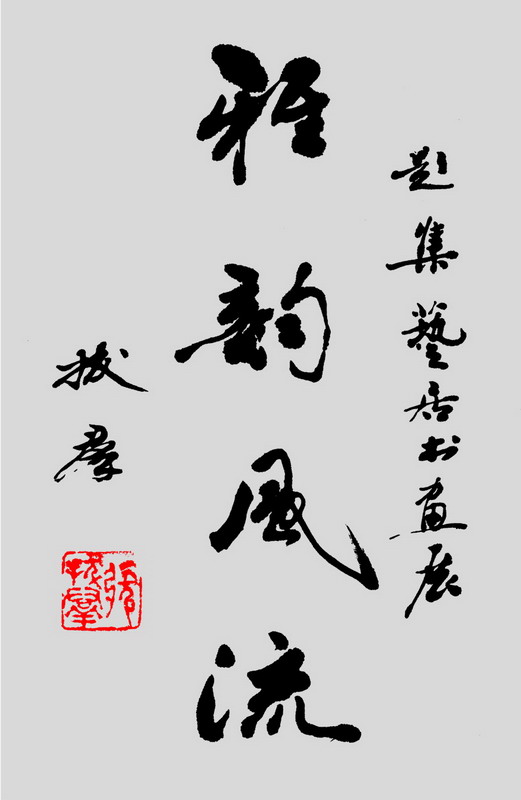 题集艺居书画展
雅韵风流
拔群
張拔群